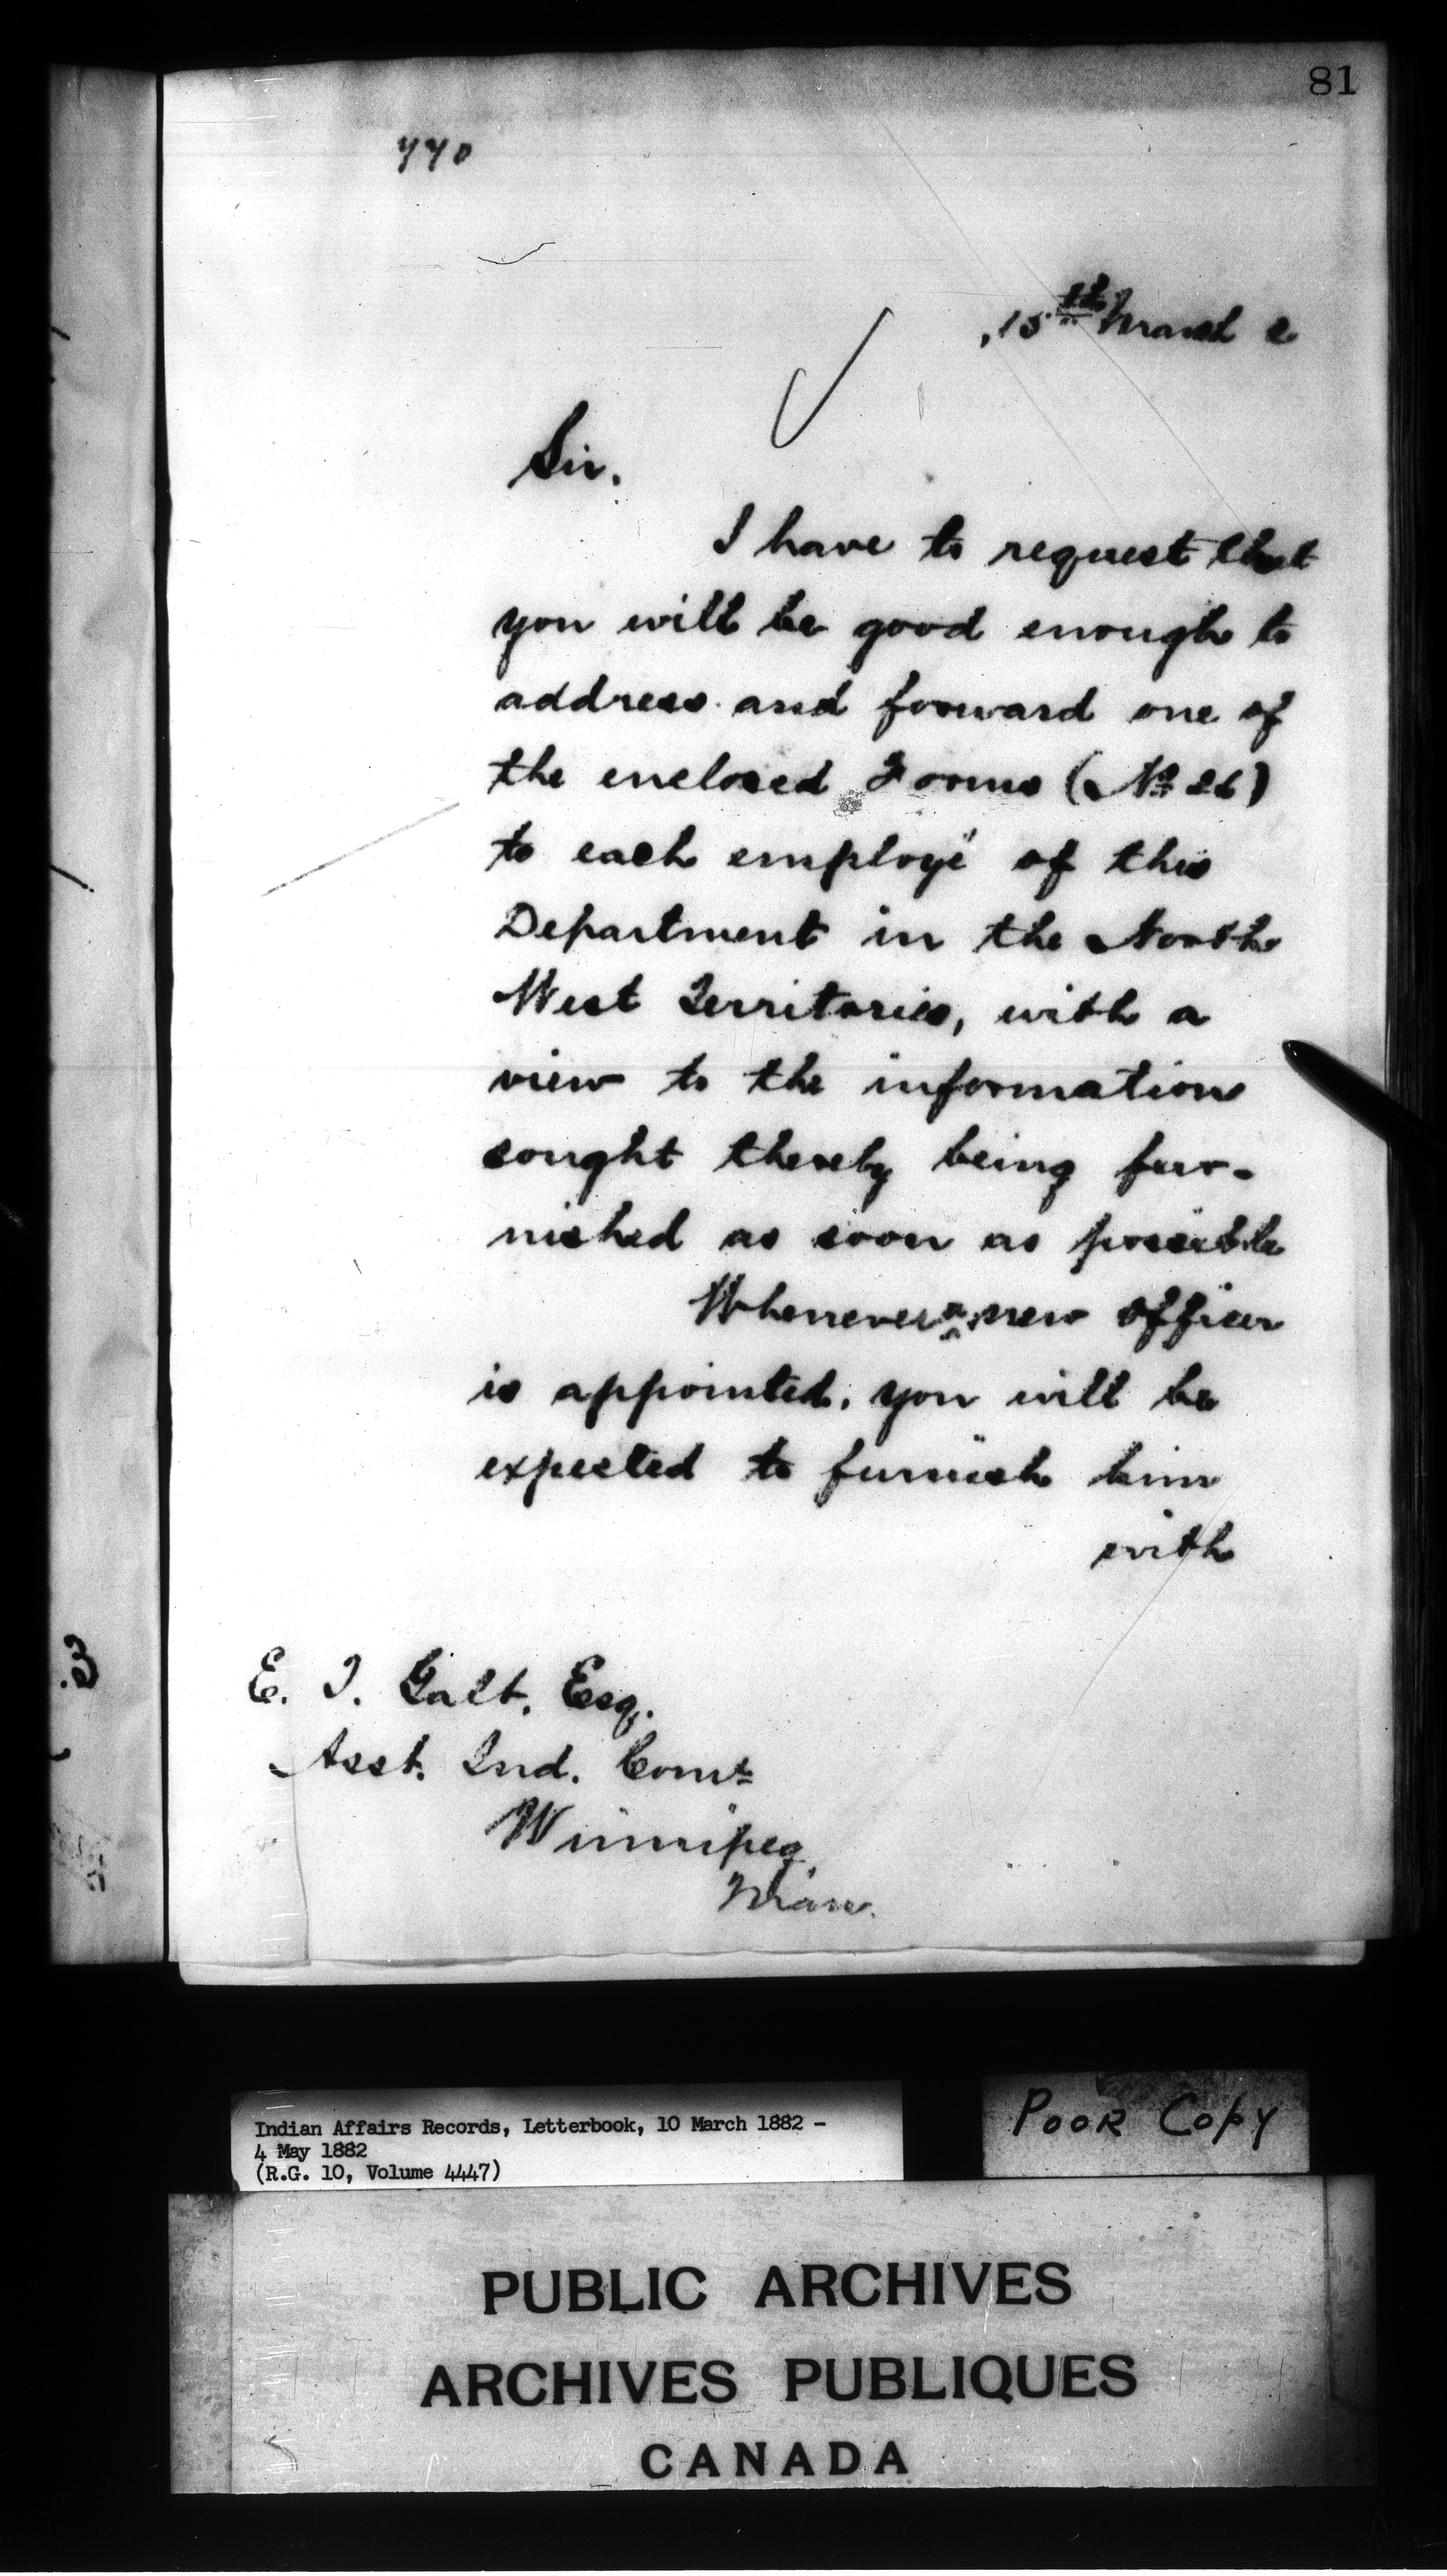 81
770
15th March 2
Sir.
I have to request that
you will be good enough to
address and forward one of
the enclosed Forms (No 26)
to each employé of this
Department in the North
West Territories, with a
view to the information
sought thereby being fur-
nished as soon as possible
Whenever a new officer
is appointed, you will be
expected to furnish him
with
E. T. Galt, Esq.
Asst. Ind. Comr
Winnipeg,
Man.
Indian Affairs Records, Letterbook, 10 March 1882 -
4 May 1882
(R.G. 10, Volume 4447)
POOR COPY
PUBLIC ARCHIVES
ARCHIVES PUBLIQUES
CANADA